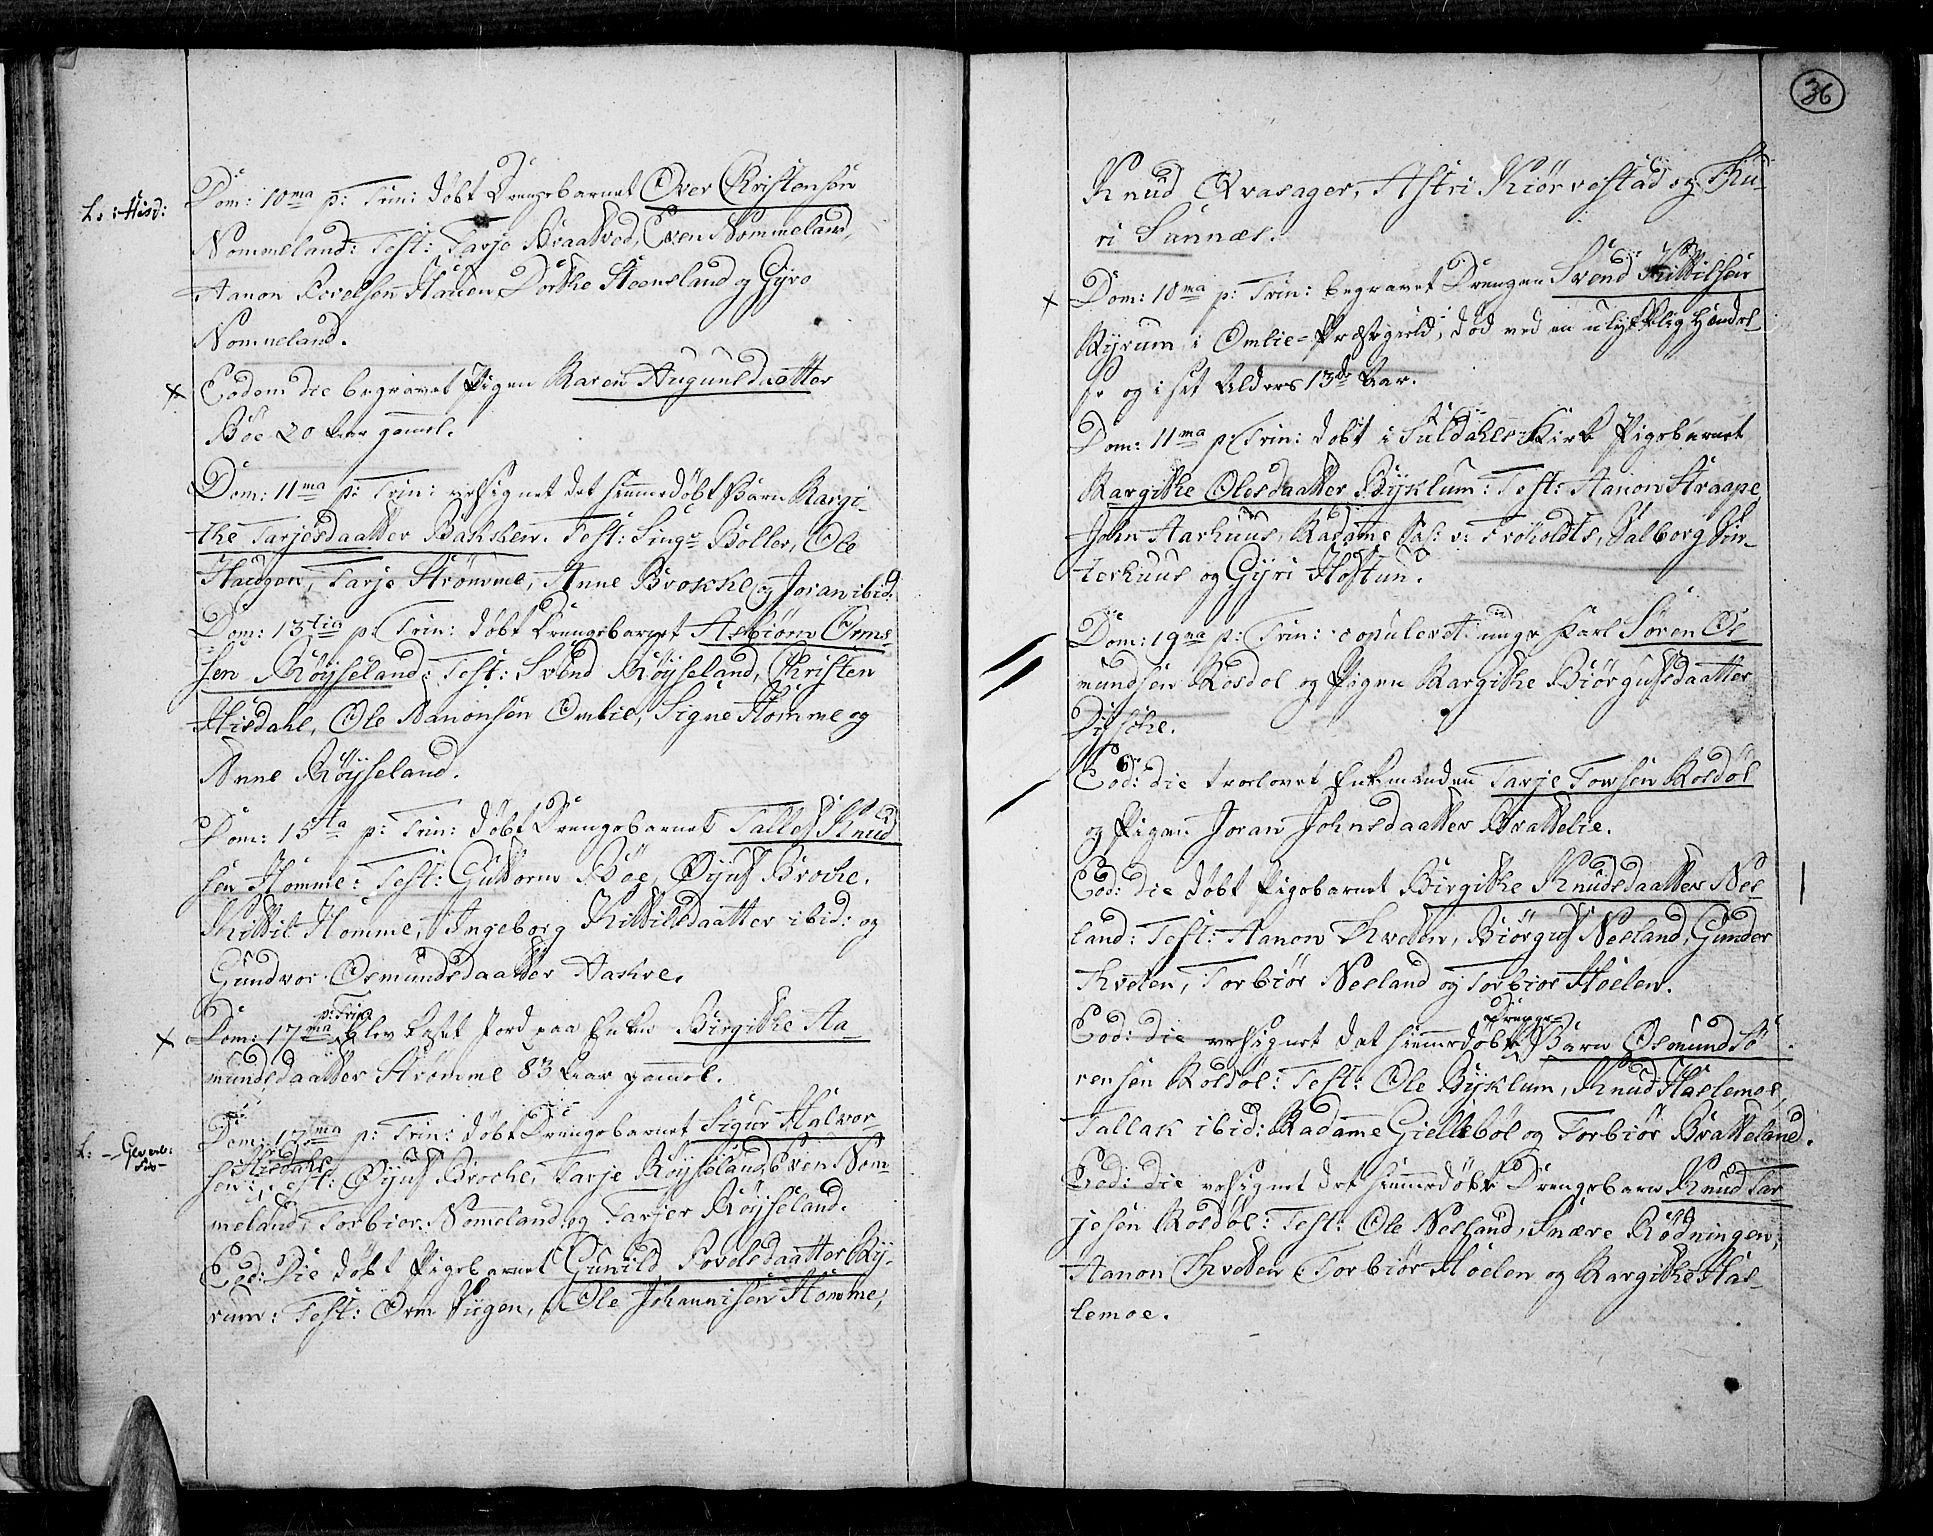 L: :Hisd:
Dom: 10ma p: Trin: døbt Drengebarnet Over Christensøn
Nommeland: Test: Tarje Braatved, Even Nommeland,
Aanon Hauen Dorthe Steensland og Gyro
Nomneland.
Eodem die begravet Pigen Karen Augundsdaatter
Böe 20 Aar gamel.
Dom: 11ma p: Trin: velsignet det hiemmedöbt Barn Margi-
the Tarjesdaatter Bakken. Test: Sing: Böller, Ole
Haugen, Tarje Strömme, Anne Brokke og Joran ibid:
Dom: 13tia p: Trin: döbt Drengebarnet Asbiörn Orms-
sen Röijseland: Test: Svend Röijseland, Christen
Hisdahl, Ole Aanonsen Omlie, Signe Homme og
Anne Röijseland.
Dom: 15ta p: Trin: döbt Drengebarnet Tallef Knud
sen Homme: Test: Guttorm Böe, Öijuf Brocke,
Kittil Homme, Ingeborg Kittilsdaatter ibid: og
Gundvor Osmundsdaatter Aaskre.
p: Trin:
Dom: 17ma blev kastet Jord paa Enken Birgithe Aa
mundsdaatter Strömme 83 Aar gamel.
L: -
Dom: 17ma p: Trin: döbt Drengebarnet Sigur Halvor
Hisdahl
sen: Test: Öijuf Brocke, Tarje Röijseland, Even Nom
meland, Torbior Nomeland og Tarjer Röijseland.
Eod: Die döbt Pigebarnet Gunild Tovelsdaatter Rij-
rum: Test: Orm Viigen, Ole Johannisen Homme,
36
Knud Qvasager, Astri Kiörvestad og Thu-
ri Sannæs.
Dom: 10ma p: Trin: begravet Drengen Svend Kittilsen
Rijrum i Omlie-Præstegield, död ved en ulykkelig Hændel-
se og i sit Alders 13de Aar.
Dom: 11ma p: Trin: döbt i Suldahls Kirk Pigebarnet
Margithe Olesdaatter Bijklum: Test: Aanon Straape
John Aarhuus, Madame Sal: v: Froholdts, Salborg Sin-
terhuus og Gijri Hostun.
Dom: 19na p: Trin: copuleret unge Karl Sören Os-
mundsen Rosdol og Pigen Margithe Biörgufsdaatter
Eod: die trolovet Enkemanden Tarje Torsen Rosdöl
og Pigen Joran Johnsdaatter Brattelie.
Eod: die döbt Pigebarnet Birgithe Knudsdaatter Nes-
land: Test: Aanon Kveten, Biörguf Nesland, Gunder
Kveten, Torbiör Nesland og Torbior Höelen.
Drenge-
Eod: die velsignet det hiemmedöbte Barn Osmund Sö
rensen Rosdöl: Test: Ole Bijklum, Knud Haslemoe,
Tallak ibid: Madame Gielleböl og Torbiör Bratteland.
Eod: die velsignet det hiemmedöbte Drengebarn Knud Tar
jesen Rosdöl: Test: Ole Nesland, Snære Rödningen,
Aanon Kvetten Torbiör Höelen og Margithe Has-
lemoe.